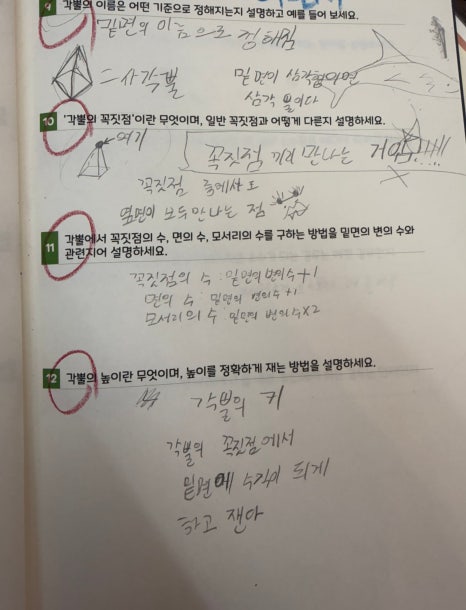 9 각뿔의 이름은 어떤 기준으로 정해지는지 설명하고 예를 들어 보세요.
밑면의 이름으로 정해짐
= 사각뿔
밑면이 삼각형이면
삼각 뿔이다
10 '각뿔의 꼭짓점'이란 무엇이며, 일반 꼭짓점과 어떻게 다른지 설명하세요.
여기
꼭짓점 끼리 만나는 거임!!!!
꼭짓점 중에서도
옆면이 모두 만나는 점
11 각뿔에서 꼭짓점의 수, 면의 수, 모서리의 수를 구하는 방법을 밑면의 변의 수와
관련지어 설명하세요.
꼭짓점의 수 : 밑면의 변의 수 +1
면의 수 : 밑면의 변의 수 +1
모서리의 수 밑면의 변의 수 ×2
12 각뿔의 높이란 무엇이며, 높이를 정확하게 재는 방법을 설명하세요.
각뿔의 키
각뿔의 꼭짓점에서
밑면에 수직이 되게
하고 잰다